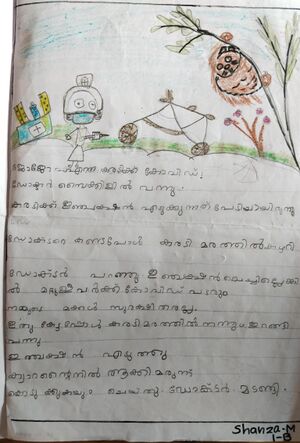 ജോജോ എന്ന കരടിക്ക് കോവിഡ്.
ഡോക്ടർ സൈക്കിളിൽ വന്നു.
കരടിക്ക് ഇഞ്ചക്ഷൻ എടുക്കുന്നത് പേടിയായിരുന്നു
ഡോക്ടറെ കണ്ടപ്പോൾ കരടി മരത്തിൽ കയറി
ഡോക്ടർ പറഞ്ഞു ഇഞ്ചക്ഷൻ ചെയ്തില്ലെങ്കി
ൽ മറ്റുള്ളവർക്ക് കോവിഡ് പടരും
നമ്മുടെ മക്കൾ സുരക്ഷിതരല്ല.
ഇതു കേട്ടപ്പോൾ കരടി മരത്തിൽ നിന്നും ഇറങ്ങി
വന്നു
ഇഞ്ചക്ഷൻ എടുത്തു
ക്വാറന്റൈനിൽ ആക്കി മരുന്ന്
കൊടുക്കുകയും ചെയ്തു. ഡോക്ടർ മടങ്ങി.
Shanza.M
1-B